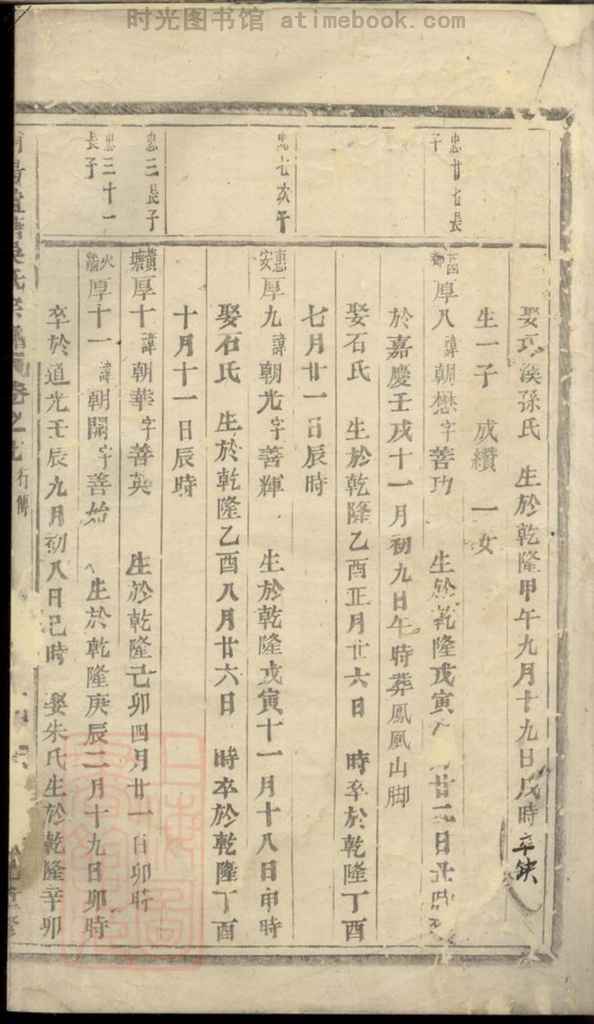 时光图书馆 atimebook.com
忠廿七長
子
娶 溪孫氏 生於乾隆甲午九月十九日戌時 卒缺
生一子 成纘 一女
厚八諱朝懋字善功 生於乾隆戊寅 廿 日 時
於嘉慶壬戌十一月初九日午時葬鳳凰山脚
娶石氏 生於乾隆乙酉正月廿六日 時卒於乾隆丁酉
七月廿一日辰時
忠七次子
惠安 厚九諱朝光字善輝 生於乾隆戊寅十一月十八日申時
娶石氏 生於乾隆乙酉八月廿六日 時卒於乾隆丁酉
十月十一日辰時
忠三長子
黃壙 厚十諱朝華字善英 生於乾隆己卯四月廿一日卯時
忠三十一
長子
厚十一諱朝開字善始 生於乾隆庚辰二月十九日卯時
卒於道光壬辰九月初八日巳時 娶朱氏生於乾隆辛卯
吳氏宗譜 卷之 行傳